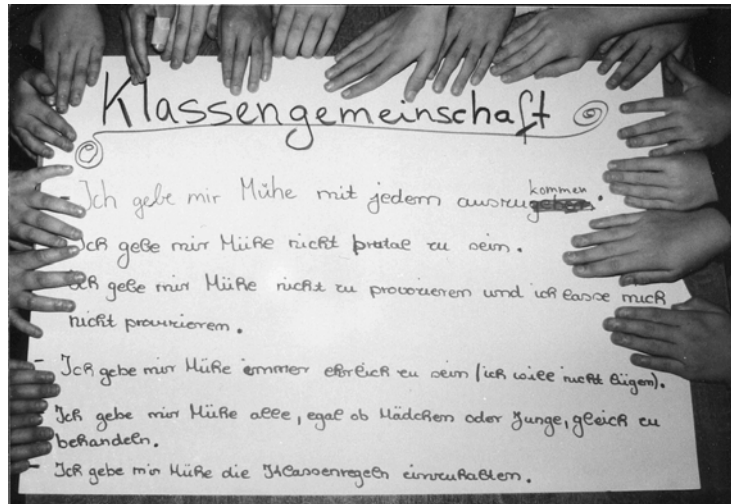 Klassengemeinschaft
- Ich gebe mir Mühe mit jedem auszukommen.
- Ich gebe mir Mühe nicht brutal zu sein.
Ich gebe mir Mühe nicht zu provozieren und ich lasse mich
nicht provozieren.
- Ich gebe mir Mühe immer ehrlich zu sein (ich will nicht lügen).
- Ich gebe mir Mühe alle, egal ob Mädchen oder Junge, gleich zu
behandeln.
- Ich gebe mir Mühe die Klassenregeln einzuhalten.